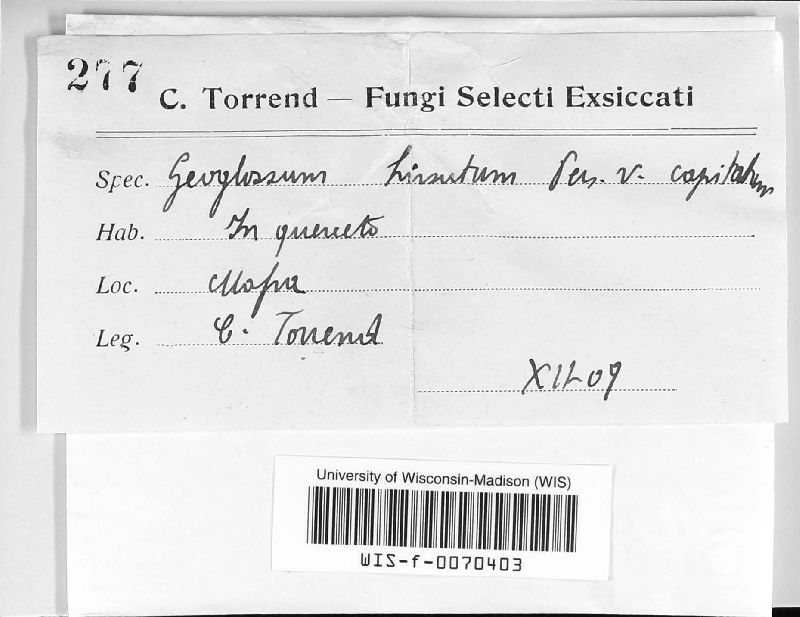 277
C. Torrend — Fungi Selecti Exsiccati
Spec. Geoglossum hirsutum Pers. v. capitatum
Hab. In querceto
Loc. Mafra
Leg. C. Torrend
XII-09
University of Wisconsin-Madison (WIS)
WIS-f-0070403